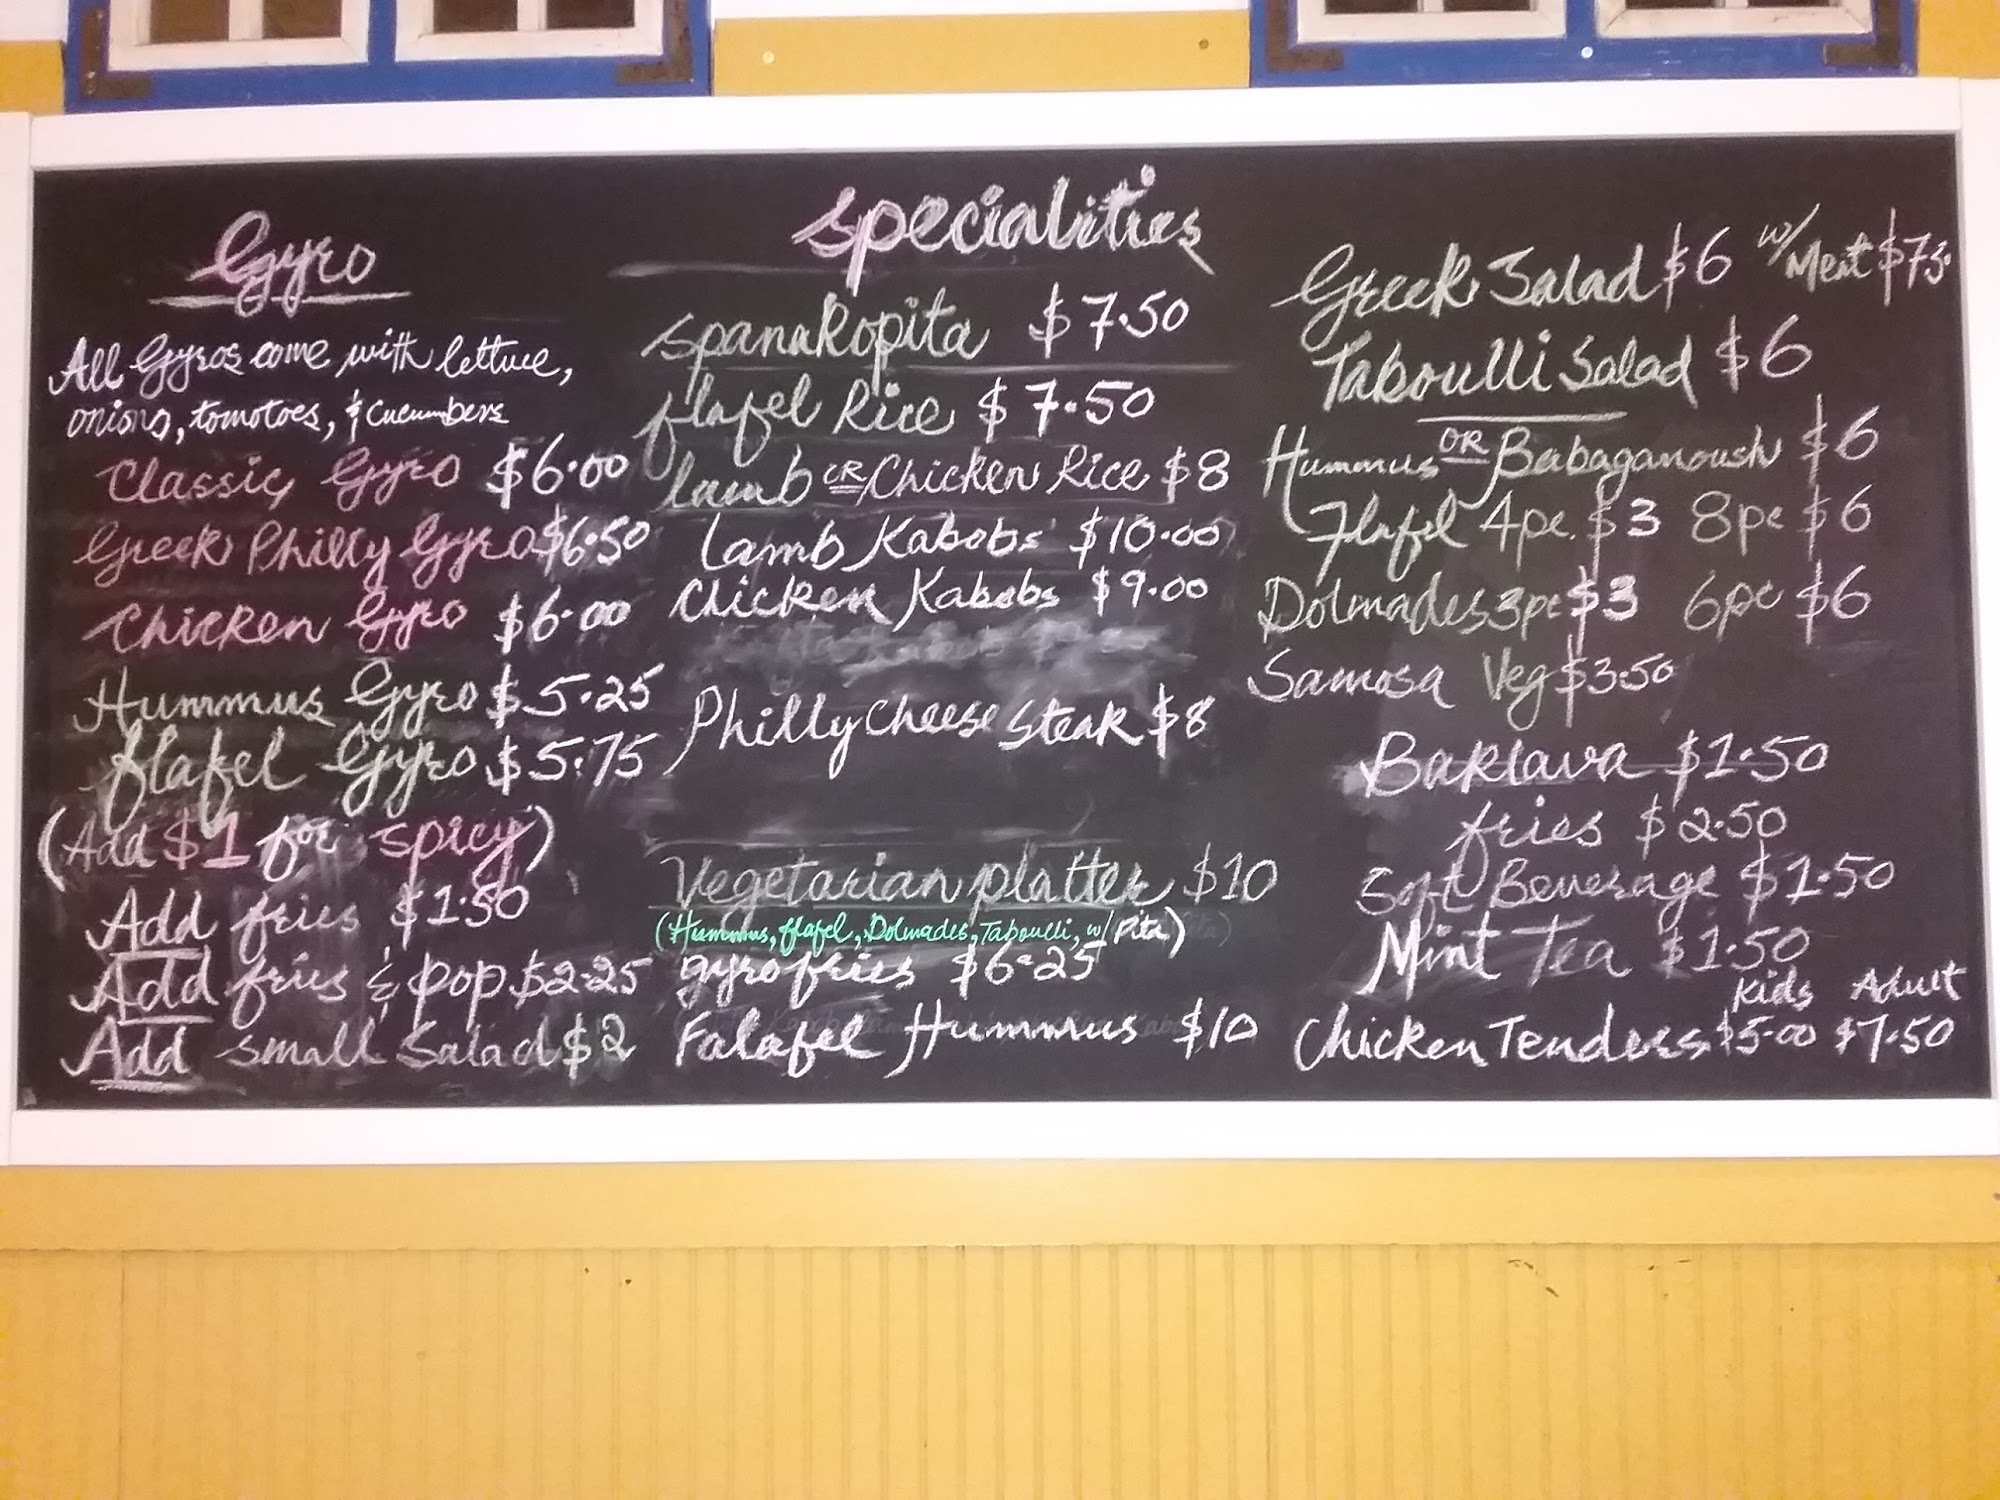 Gyro
All Gyros come with lettuce,
onions, tomotoes, & cucumbers
Classic Gyro $6.00
Greek Philly Gyro $6.50
Chicken Gyro $6.00
Hummus Gyro $5.25
flafel Gyro $5.75
(Add $1 for spicy)
Add fries $1.50
Add fries & pop $2.25
Add small Salad $2
Specialities
Spanakopita $7.50
flafel Rice $7.50
lamb OR Chicken Rice $8
Lamb Kabobs $10.00
Chicken Kabobs $9.00
Philly Cheese Steak $8
Vegetarian platter $10
(Hummus, flafel, Dolmades, Taboulli, w/ Pita)
gyro fries $6.25
Falafel Hummus $10
Greek Salad $6 w/ Meat
Taboulli Salad $6
Hummus OR Babaganoush $6
Flafel 4pc. $3 8pc $6
Dolmades 3pc $3 6pc $6
Samosa Veg $3.50
Baklava $1.50
fries $2.50
Soft Beverage $1.50
Mint Tea $1.50
Kids Adult
Chicken Tenders $5.00 $7.50